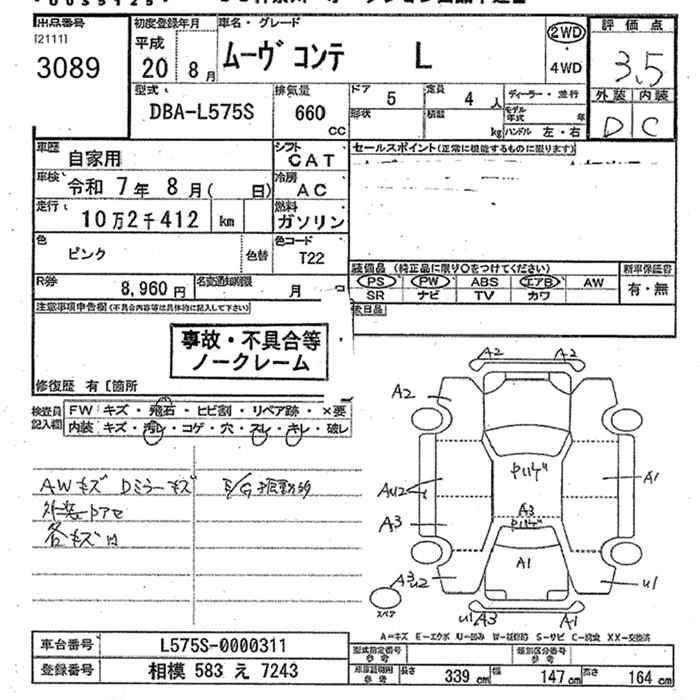 出品番号 初度登録年月 車名・グレード 評価点
[21111] 平成 ムーヴ コンテ L 2WD
3089 20年 8月 4WD 3.5
型式 排気量 ドア 定員 ディーラー・並行 外装 内装
DBA-L575S 660 CC 5 4人 モデル年式 年
形状 積載 kg ハンドル 左・右 D C
車歴 自家用 シフト CAT セールスポイント(正常に機能するものに限ります)
車検 令和 7年 8月( 日) 冷房 AC
走行 10万2千412 km 燃料 ガソリン
色 ピンク 色替 色コード T22
装備品 (純正品に限り○をつけてください) 新車保証書
R券 8,960円 名変通知期限 月 PS PW ABS エアB AW 有・無
SR ナビ TV カワ
注意事項申告欄(不具合内容等は具体的に記入して下さい) 後日品
事故・不具合等
ノークレーム
修復歴 有 [箇所
検査員 FW キズ・飛石・ヒビ割・リペア跡・×要
記入欄 内装 キズ・汚レ・コゲ・穴・スレ・キレ・破レ
AWキズ Dミラーキズ E/G振動
各キズ凹
A2 A2
A2
AU2 A1
A3 A3
A1
A3U2 U1
スペア U1 A3 A1
A=キズ E=エクボ U=凹み W=補修跡 S=サビ C=腐食 XX=交換済
車台番号 L575S-0000311 型式指定番号 参考 類別区分番号 参考
登録番号 相模 583 え 7243 車庫証明用 参考 長さ 339 cm 幅 147 cm 高さ 164 cm